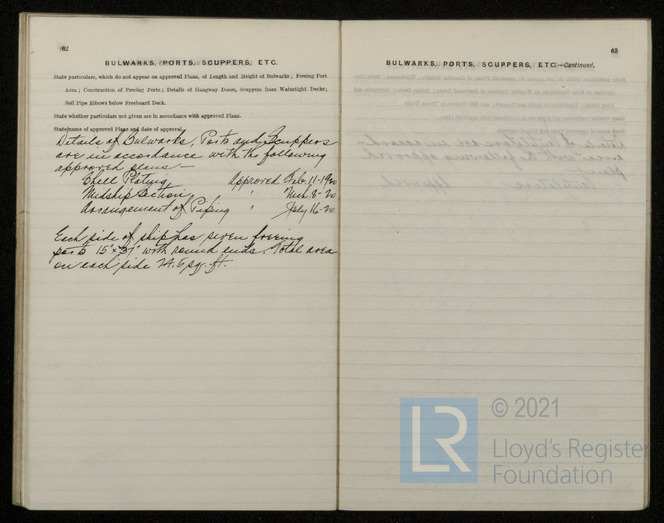 62
BULWARKS, PORTS, SCUPPERS, ETC.
State particulars, which do not appear on approved Plans, of Length and Height of Bulwarks; Freeing Port
Area; Construction of Freeing Ports; Details of Gangway Doors, Scuppers from Watertight Decks;
Soil Pipe Elbows below Freeboard Deck.
State whether particulars not given are in accordance with approved Plans.
State name of approved Plans and date of approval.
Details of Bulwarks, Ports and Scuppers
are in accordance with the following
approved plans—
Shell Plating Approved Feb. 11-1920
Midship Section " Mch 8-20
Arrangement of Piping " July 16-20
Each side of ship has seven freeing
ports 15" x 37" with round ends. Total area
on each side 24.5 sq. ft.
63
BULWARKS, PORTS, SCUPPERS, ETC.—Continued.
© 2021
LR
Lloyd's Register
Foundation